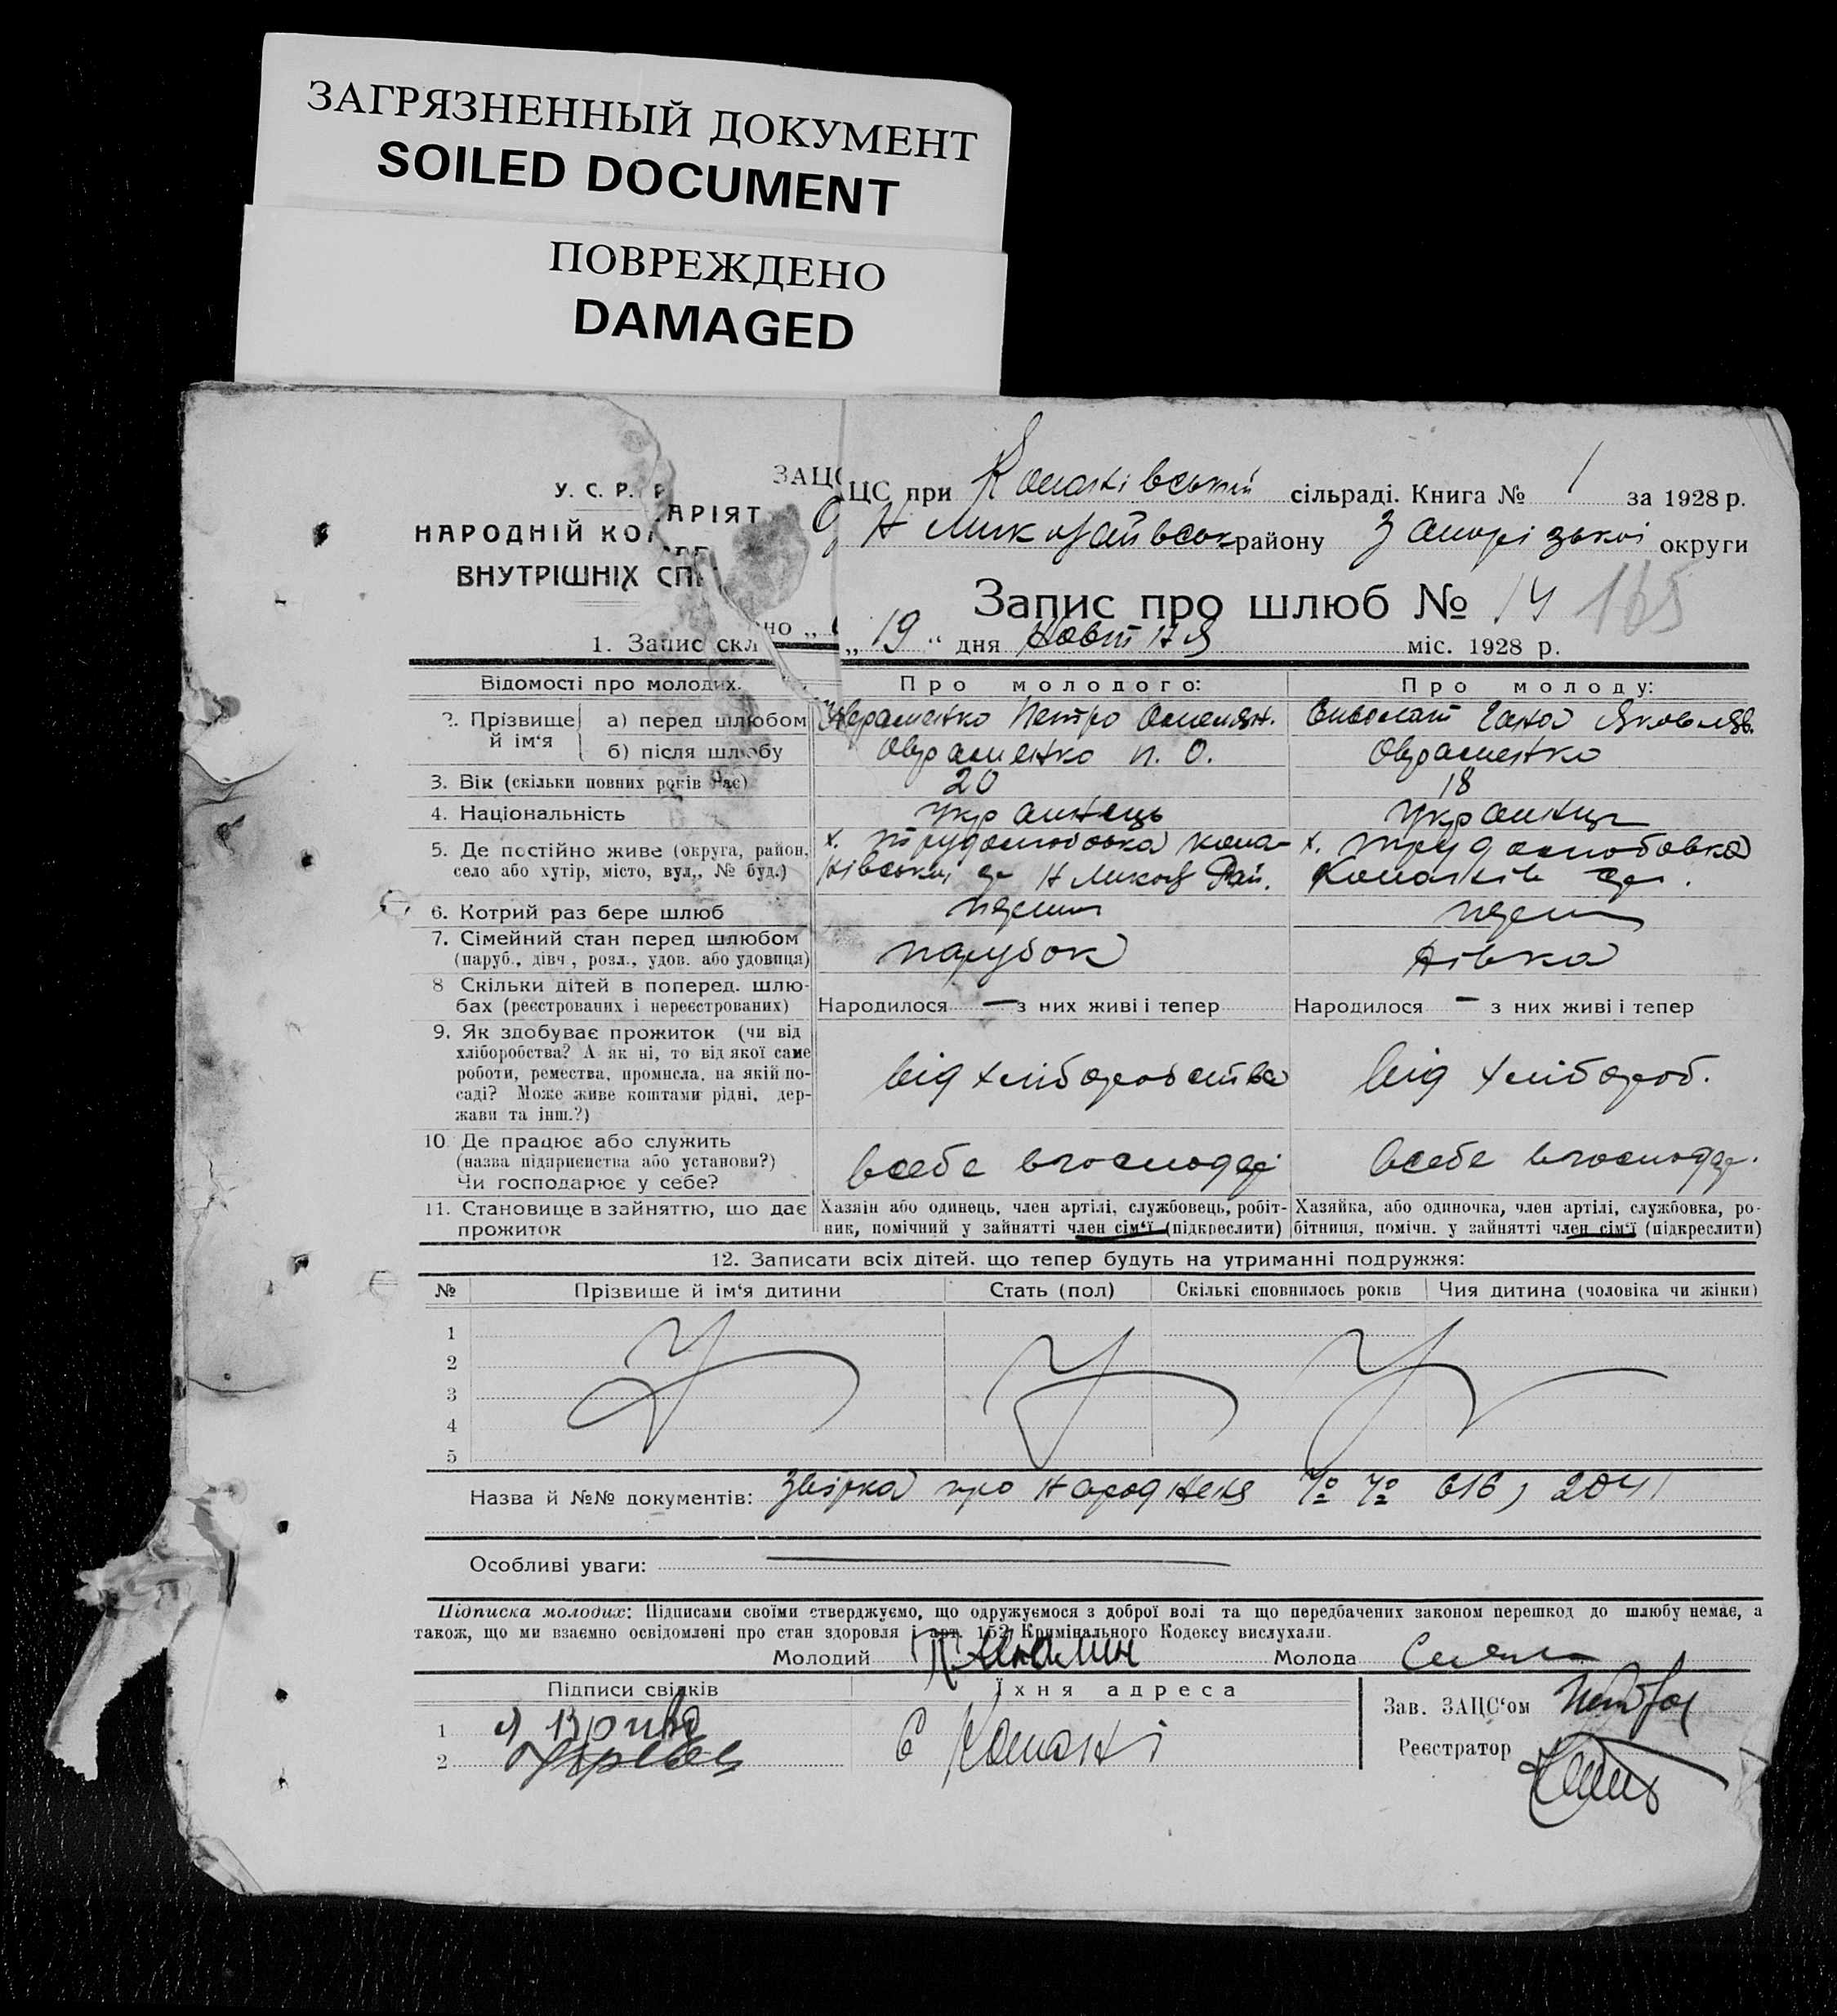 ЗАГРЯЗНЕННЫЙ ДОКУМЕНТ
SOILED DOCUMENT
ПОВРЕЖДЕНО
DAMAGED
У. С. Р. Р.
НАРОДНІЙ КО АРІЯТ
ВНУТРІШНІХ СП
ЗАЦ ЦС при Копанівській сільраді. Книга № 1 за 1928 р.
Н Миколаївськ району Запорізької округи
Запис про шлюб № 14 165
1. Запис скл но „ 19 “ дня Новтня міс. 1928 р.
Відомості про молодих. Про молодого: Про молоду:
2. Прізвище й ім‘я
а) перед шлюбом Петро Яковлєв.
б) після шлюбу Овраменко П. О. Овраменко
3. Вік (скільки повних років має) 20 18
4. Національність Українець Українц
5. Де постійно живе (округа, район, село або хутір, місто, вул., № буд.)
х. Трудолюбовка Копа-
нівської ср Н Микол Рай.
х. Трудолюбовка
Копанків ср.
6. Котрий раз бере шлюб перший перш
7. Сімейний стан перед шлюбом парубок дівка
(паруб., дівч., розл., удов. або удовиця)
8 Скільки дітей в поперед. шлю-
бах (реєстрованих і нереєстрованих) Народилося — з них живі і тепер Народилося — з них живі і тепер
9. Як здобуває прожиток (чи від
хліборобства? А як ні, то від якої саме
роботи, ремества, промисла, на якій по-
саді? Може живе коштами рідні, дер-
жави та інш.?)
від хліборобства від хлібороб.
10. Де працює або служить
(назва підприєнства або установи?)
Чи господарює у себе?
всебе вгосподрі всебе вгосподр.
11. Становище в зайняттю, що дає
прожиток
Хазяїн або одинець, член артілі, службовець, робіт-
ник, помічний у зайнятті член сім‘ї (підкреслити)
Хазяйка, або одиночка, член артілі, службовка, ро-
бітниця, помічн. у зайнятті член сім‘ї (підкреслити)
12. Записати всіх дітей. що тепер будуть на утриманні подружжя:
№ Прізвище й ім‘я дитини Стать (пол) Скількі сповнилось років Чия дитина (чоловіка чи жінки)
1
2
3
4
5
Назва й №№ документів: Звірка про народненя № № 616, 2041
Особливі уваги:
Підписка молодих: Підписами своїми стверджуємо, що одружуємося з доброї волі та що передбачених законом перешкод до шлюбу немає, а
також, що ми взаємно освідомлені про стан здоровля і арт. 152 Кримінального Кодексу вислухали.
Молодий Молода
Підписи свідків Їхня адреса
Зав. ЗАЦС‘ом
1
2 С Копані
Реєстратор